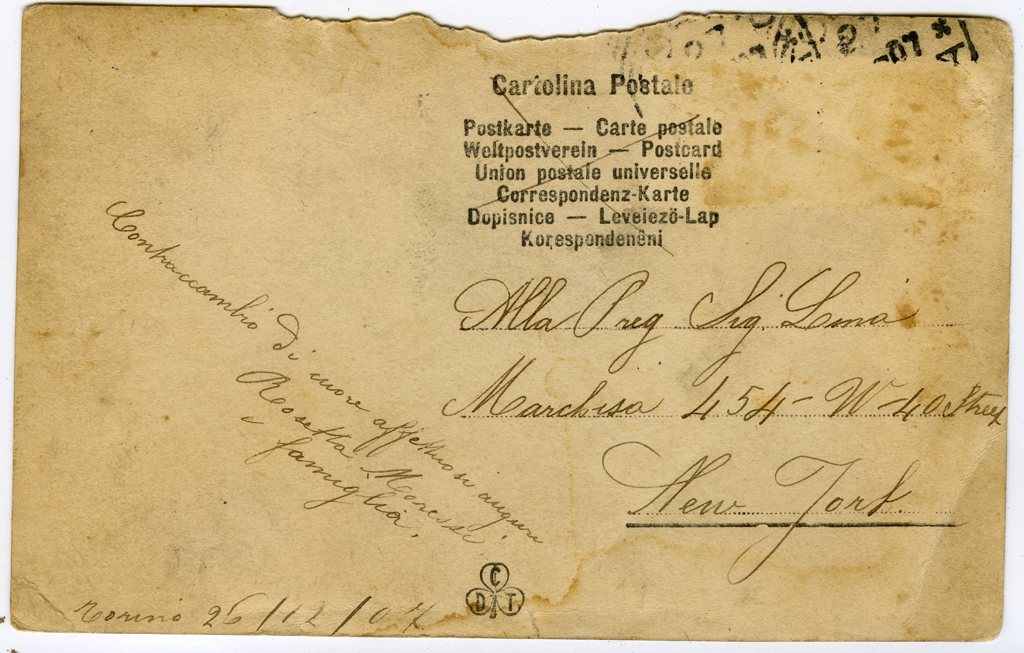 07
Cartolina Postale
Postkarte — Carte postale
Weltpostverein — Postcard
Union postale universelle
Correspondenz-Karte
Dopisnice — Levelező-Lap
Korespondenční
Alla Preg Sig. Lina
Marchisa 454 - W - 40 Street
New York
Contraccambio
di cuore affettuosi auguri
Rosetta
e famiglia.
C
D T
Torino 26/12/07